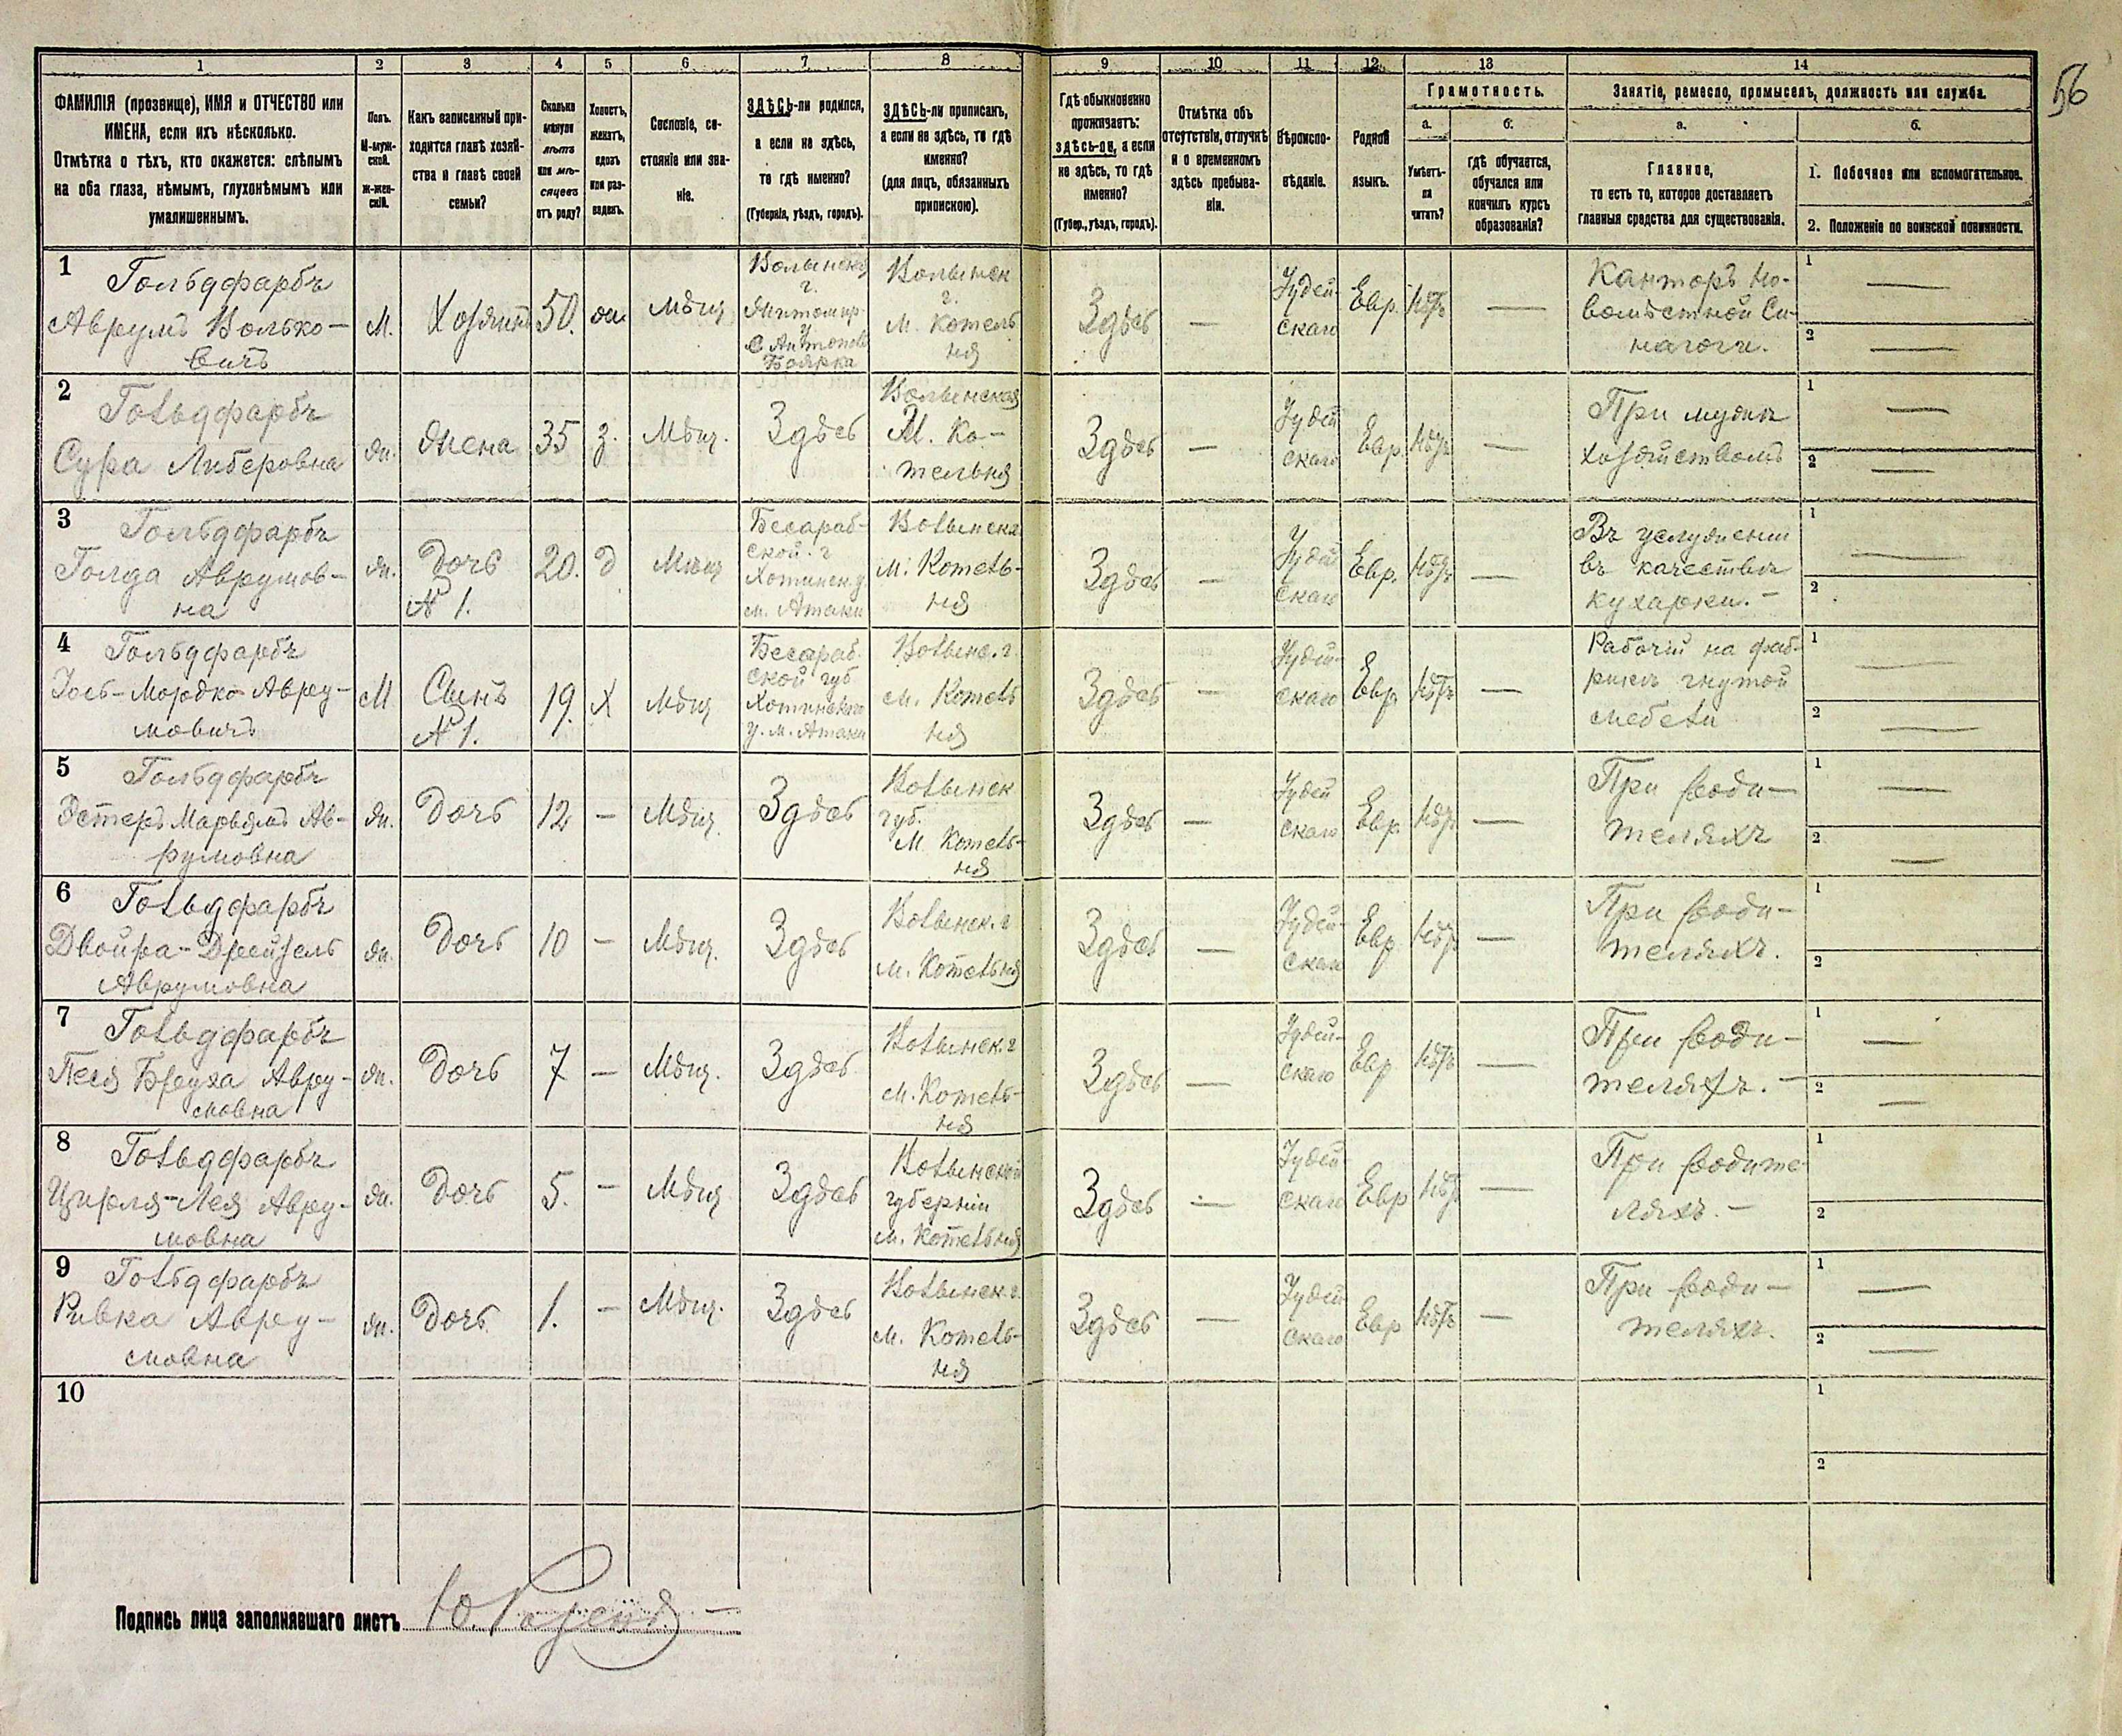 56
1 2 3 4 5 6 7 8 9 10 11 12 13 14
ФАМИЛІЯ (прозвище), ИМЯ и ОТЧЕСТВО или
ИМЕНА, если ихъ нѣсколько.
Отмѣтка о тѣхъ, кто окажется: слѣпымъ
на оба глаза, нѣмымъ, глухонѣмымъ или
умалишеннымъ.
Полъ.
М-муж-
ской.
Ж-жен-
скій.
Какъ записанный при-
ходится главѣ хозяй-
ства и главѣ своей
семьи?
Сколько
минуло
лѣтъ
или мѣ-
сяцевъ
отъ роду?
Холостъ,
женатъ,
вдовъ
или раз-
веденъ.
Сословіе, со-
стояніе или зва-
ніе.
ЗДѢСЬ-ли родился,
а если не здѣсь,
то гдѣ именно?
(Губернія, уѣздъ, городъ).
ЗДѢСЬ-ли приписанъ,
а если не здѣсь, то гдѣ
именно?
(для лицъ, обязанныхъ
припискою).
Гдѣ обыкновенно
проживаетъ:
здѣсь-ли, а если
не здѣсь, то гдѣ
именно?
(Губер., уѣздъ, городъ).
Отмѣтка объ
отсутствіи, отлучкѣ
и о временномъ
здѣсь пребыва-
ніи.
Вѣроиспо-
вѣданіе.
Родной
языкъ.
Грамотность.
а.
Умѣетъ-
ли
читать?
б.
гдѣ обучается,
обучался или
кончилъ курсъ
образованія?
Занятіе, ремесло, промыселъ, должность или служба.
а.
Главное,
то есть то, которое доставляетъ
главныя средства для существованія.
б.
1. Побочное или вспомогательное.
2. Положеніе по воинской повинности.
1
Гольдфарбъ
Аврумъ Волько-
вичъ
М.
Хозяинъ
50.
ж.
Мѣщ
Волынской
г.
Житомир.
у
с Антоновъ
Боярка
Волынск
г.
м. Котель
ня
Здѣсь
—
Іудей-
скаго
Евр.
Нѣтъ
—
Канторъ Мо-
Си-
нагоги.
1 —
2 —
2
Гольдфарбъ
Сура Либеровна
Ж.
Жена
35
з.
Мѣщ.
Здѣсь
Волынская
М. Ко-
тельня
Здѣсь
—
Іудей
скаго
Евр.
Нѣтъ
—
При мужѣ
хозяйствомъ
1 —
2 —
3
Гольдфарбъ
Голда Аврумов-
на
Ж.
Дочь
№ 1.
20.
д
Мѣщ
Бесараб-
ской. г
Хотинск. у.
м. Атаки
Волынска
м. Котель-
ня
Здѣсь
—
Іудей
скаго
Евр.
Нѣтъ
—
Въ услуженіи
въ качествѣ
кухарки. —
1 —
2
4
Гольдфарбъ
Іось-Мордко Авру-
мовичъ
М
Сынъ
№ 1.
19.
Х
Мѣщ
Бесараб.
ской губ
Хотинскаго
у. м. Атаки
Волынс. г
м. Котель
ня
Здѣсь
—
Іудей-
скаго
Евр
Нѣтъ
—
Рабочій на фаб-
рикѣ гнутой
мебели
1 —
2 —
5
Гольдфарбъ
Эстеръ Марьямъ Ав-
румовна
Ж.
Дочь
12
—
Мѣщ
Здѣсь
Волынск
губ.
М Котель-
ня
Здѣсь
—
Іудей
скаго
Евр.
Нѣтъ
—
При роди-
теляхъ
1 —
2 —
6
Гольдфарбъ
Двойра-Дрейзель
Аврумовна
Ж.
Дочь
10
—
Мѣщ.
Здѣсь
Волынск. г
м. Котельня
Здѣсь
—
Іудей-
скаго
Евр
Нѣтъ
—
При роди-
теляхъ.
1
2
7
Гольдфарбъ
Песя Бруха Авру-
мовна
Ж.
Дочь
7
—
Мѣщ.
Здѣсь
Волынск. г
м. Котель-
ня
Здѣсь
—
Іудей-
скаго
Евр
Нѣтъ
—
При роди-
теляхъ. —
1 —
2 —
8
Гольдфарбъ
Ципля-Лея Авру-
мовна
Ж.
Дочь
5.
—
Мѣщ
Здѣсь
Волынской
губерніи
м. Котельня
Здѣсь
—
Іудей
скаго
Евр
Нѣтъ
—
При родите
ляхъ. —
1
2
9
Гольдфарбъ
Ривка Авру-
мовна
Ж.
Дочь
1.
—
Мѣщ.
Здѣсь
Волынск. г.
м. Котель-
ня
Здѣсь
—
Іудей
скаго
Евр
Нѣтъ
—
При роди-
теляхъ.
1 —
2 —
10
1
2
Подпись лица заполнявшаго листъ